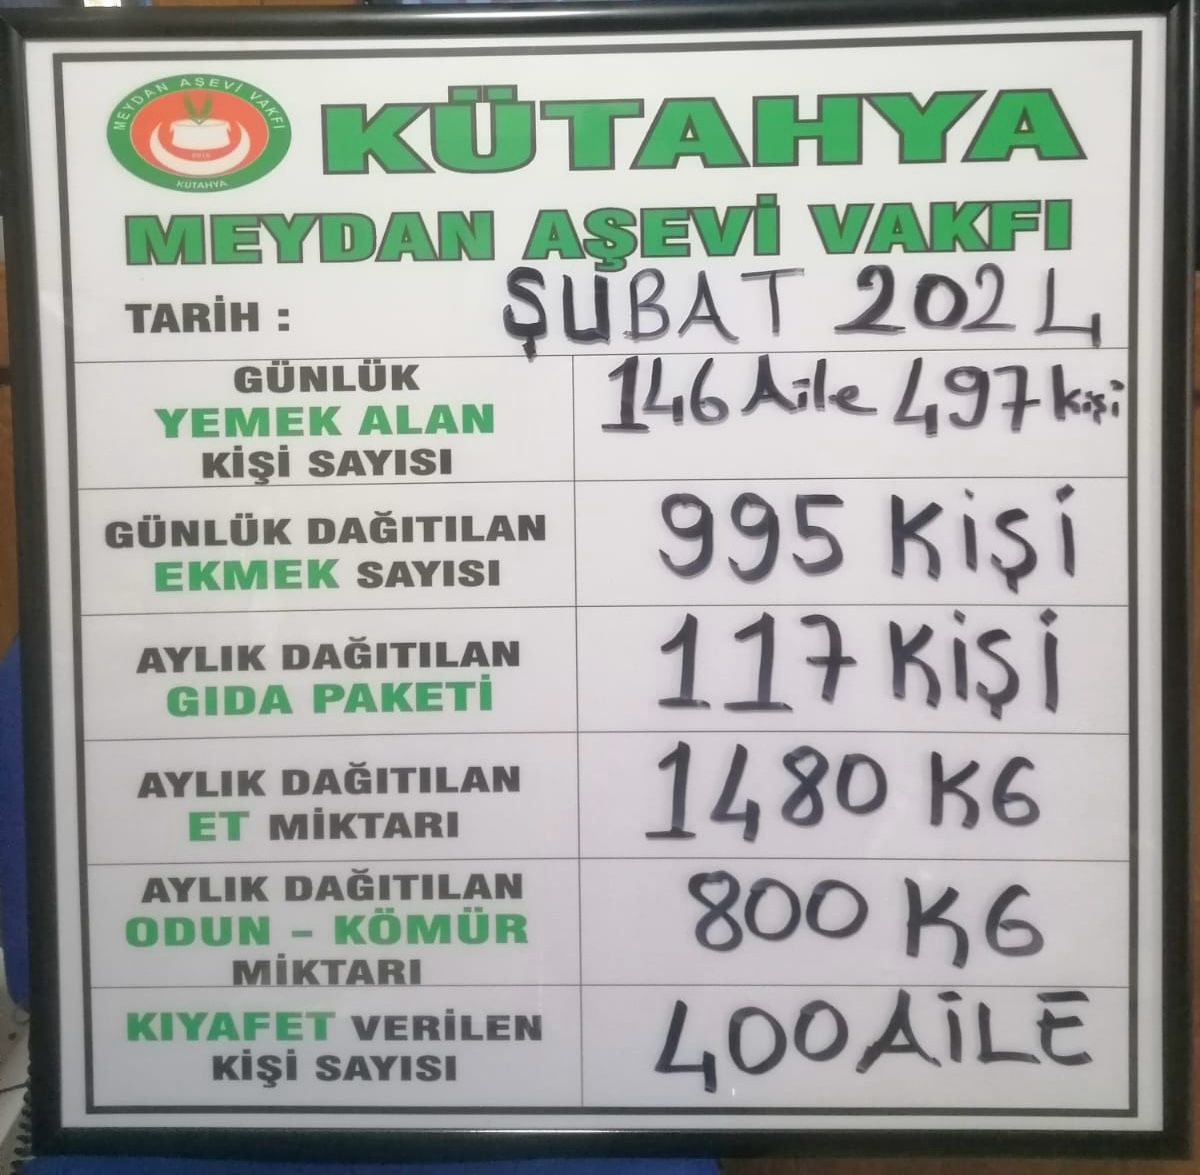 MEYDAN AŞEVİ VAKFI
KÜTAHYA
KÜTAHYA
MEYDAN AŞEVİ VAKFI
TARİH : ŞUBAT 2024
GÜNLÜK
YEMEK ALAN
KİŞİ SAYISI
146 Aile 497 kişi
GÜNLÜK DAĞITILAN
EKMEK SAYISI
995 KİŞİ
AYLIK DAĞITILAN
GIDA PAKETİ
117 KİŞİ
AYLIK DAĞITILAN
ET MİKTARI
1480 KG
AYLIK DAĞITILAN
ODUN - KÖMÜR
MİKTARI
800 KG
KIYAFET VERİLEN
KİŞİ SAYISI
400 AİLE